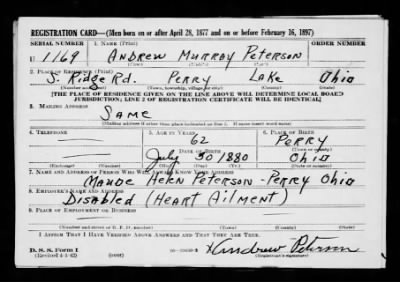 REGISTRATION CARD—(Men born on or after April 28, 1877 and on or before February 16, 1897)
SERIAL NUMBER 1. NAME (Print) ORDER NUMBER
U 1169 ANDREW MURRAY PETERSON
(First) (Middle) (Last)
2. PLACE OF RESIDENCE (Print)
S. Ridge Rd. PERRY LAKE OHIO
(Number and street) (Town, township, village, or city) (County) (State)
[THE PLACE OF RESIDENCE GIVEN ON THE LINE ABOVE WILL DETERMINE LOCAL BOARD
JURISDICTION; LINE 2 OF REGISTRATION CERTIFICATE WILL BE IDENTICAL]
3. MAILING ADDRESS
SAME
(Mailing address if other than place indicated on line 2. If same insert word same)
4. TELEPHONE 5. AGE IN YEARS 6. PLACE OF BIRTH
62 PERRY
DATE OF BIRTH (Town or county)
July 30 1880 OHIO
(Exchange) (Number) (Mo.) (Day) (Yr.) (State or country)
7. NAME AND ADDRESS OF PERSON WHO WILL ALWAYS KNOW YOUR ADDRESS
MAUDE HELEN PETERSON - PERRY OHIO
8. EMPLOYER'S NAME AND ADDRESS
DISABLED (HEART AILMENT)
9. PLACE OF EMPLOYMENT OR BUSINESS
(Number and street or R. F. D. number) (Town) (County) (State)
I AFFIRM THAT I HAVE VERIFIED ABOVE ANSWERS AND THAT THEY ARE TRUE.
D. S. S. Form 1 Andrew Peterson
(Revised 4-1-42) (over) (Registrant's signature)